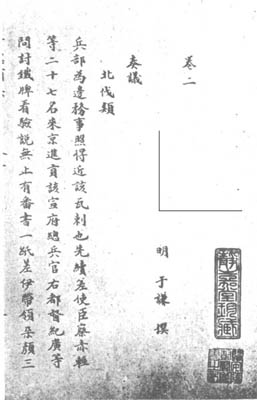 卷二
明 于謙 撰
奏議
北伐類
兵部為邊務事照得近該瓦剌也先續差使臣察赤輕
等二十七名來京進貢該宣府總兵官右都督紀廣等
問討鐵牌看驗說無止有番書一紙差伊帶領朵顏三
靜嘉堂珍藏